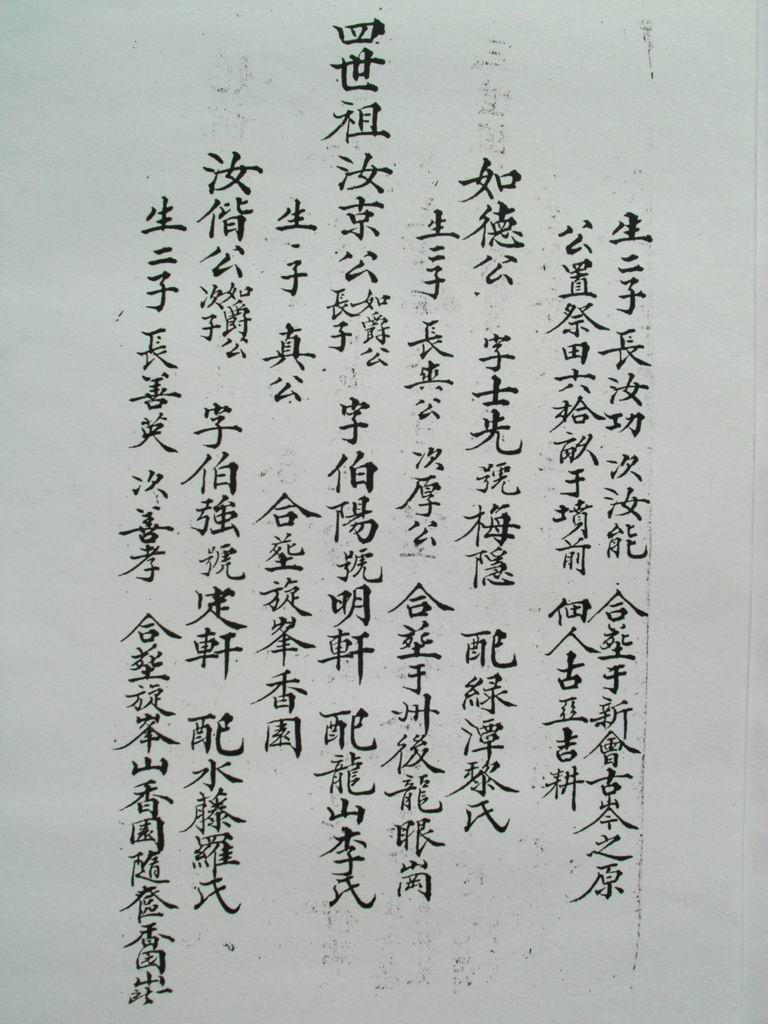 生二子 長汝功 次汝能 合塟于新會古岑之原
公置祭田六拾畝于墳前 佃人古亞吉耕
如德公 字士先號梅隱 配綠潭黎氏
生二子 長真公 次厚公 合塟于州後龍眼崗
四世祖汝京公 如爵公長子 字伯陽號明軒 配龍山李氏
生一子 真公 合塟旋峯香園
汝偕公 如爵公次子 字伯強號定軒 配水藤羅氏
生二子 長善英 次善孝 合塟旋峯山香園隨